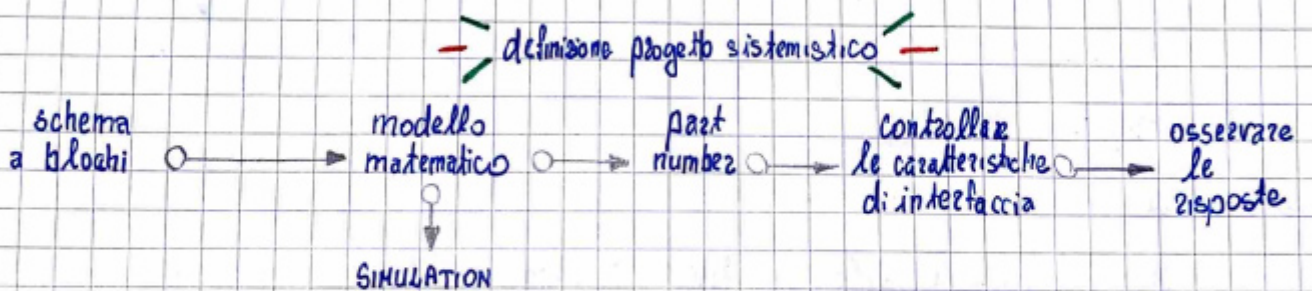 definizione progetto sistemistico
schema
a blocchi
modello
matematico
part
number
controllare
le caratteristiche
di interfaccia
osservare
le
risposte
SIMULATION